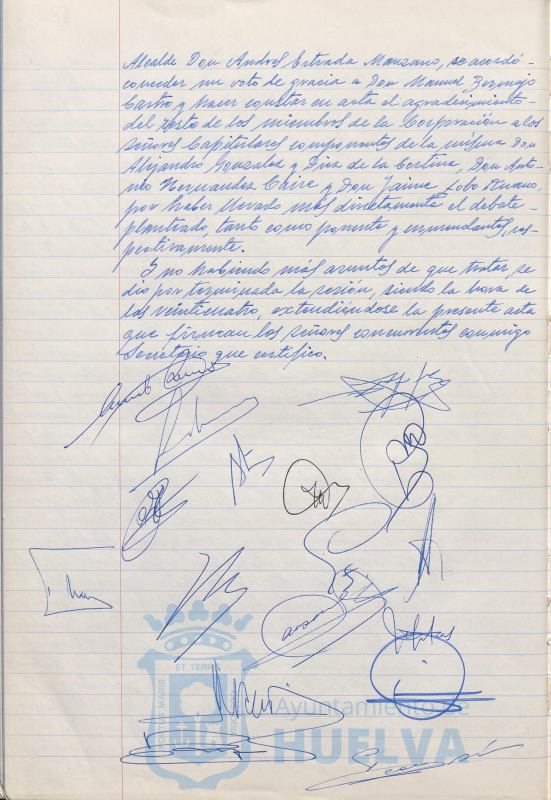 Alcalde Don Andres Estrada Manzano, se acordó-
conceder un voto de gracia a Don Manuel Bermejo
Castro y hacer constar en acta el agradecimiento-
del resto de los miembros de la Corporación a los
señores Capitulares componentes de la misma Don
Alejandro Gonzalez y Diaz de la Cortina, Don Anto-
nio Hernandez Caire y Don Jaime Lobo
por haber llevado más directamente el debate-
planteado, tanto como ponente y enmendantes, res-
pectivamente.
Y no habiendo más asuntos de que tratar, se
dio por terminada la sesión, siendo la hora de
las veinticuatro, extendiéndose la presente acta
que firman los señores concurrentes conmigo
Secretario que certifico.
ET TERRE
PORTUS MARIS
CUSTODIA
Ayuntamiento de
HUELVA